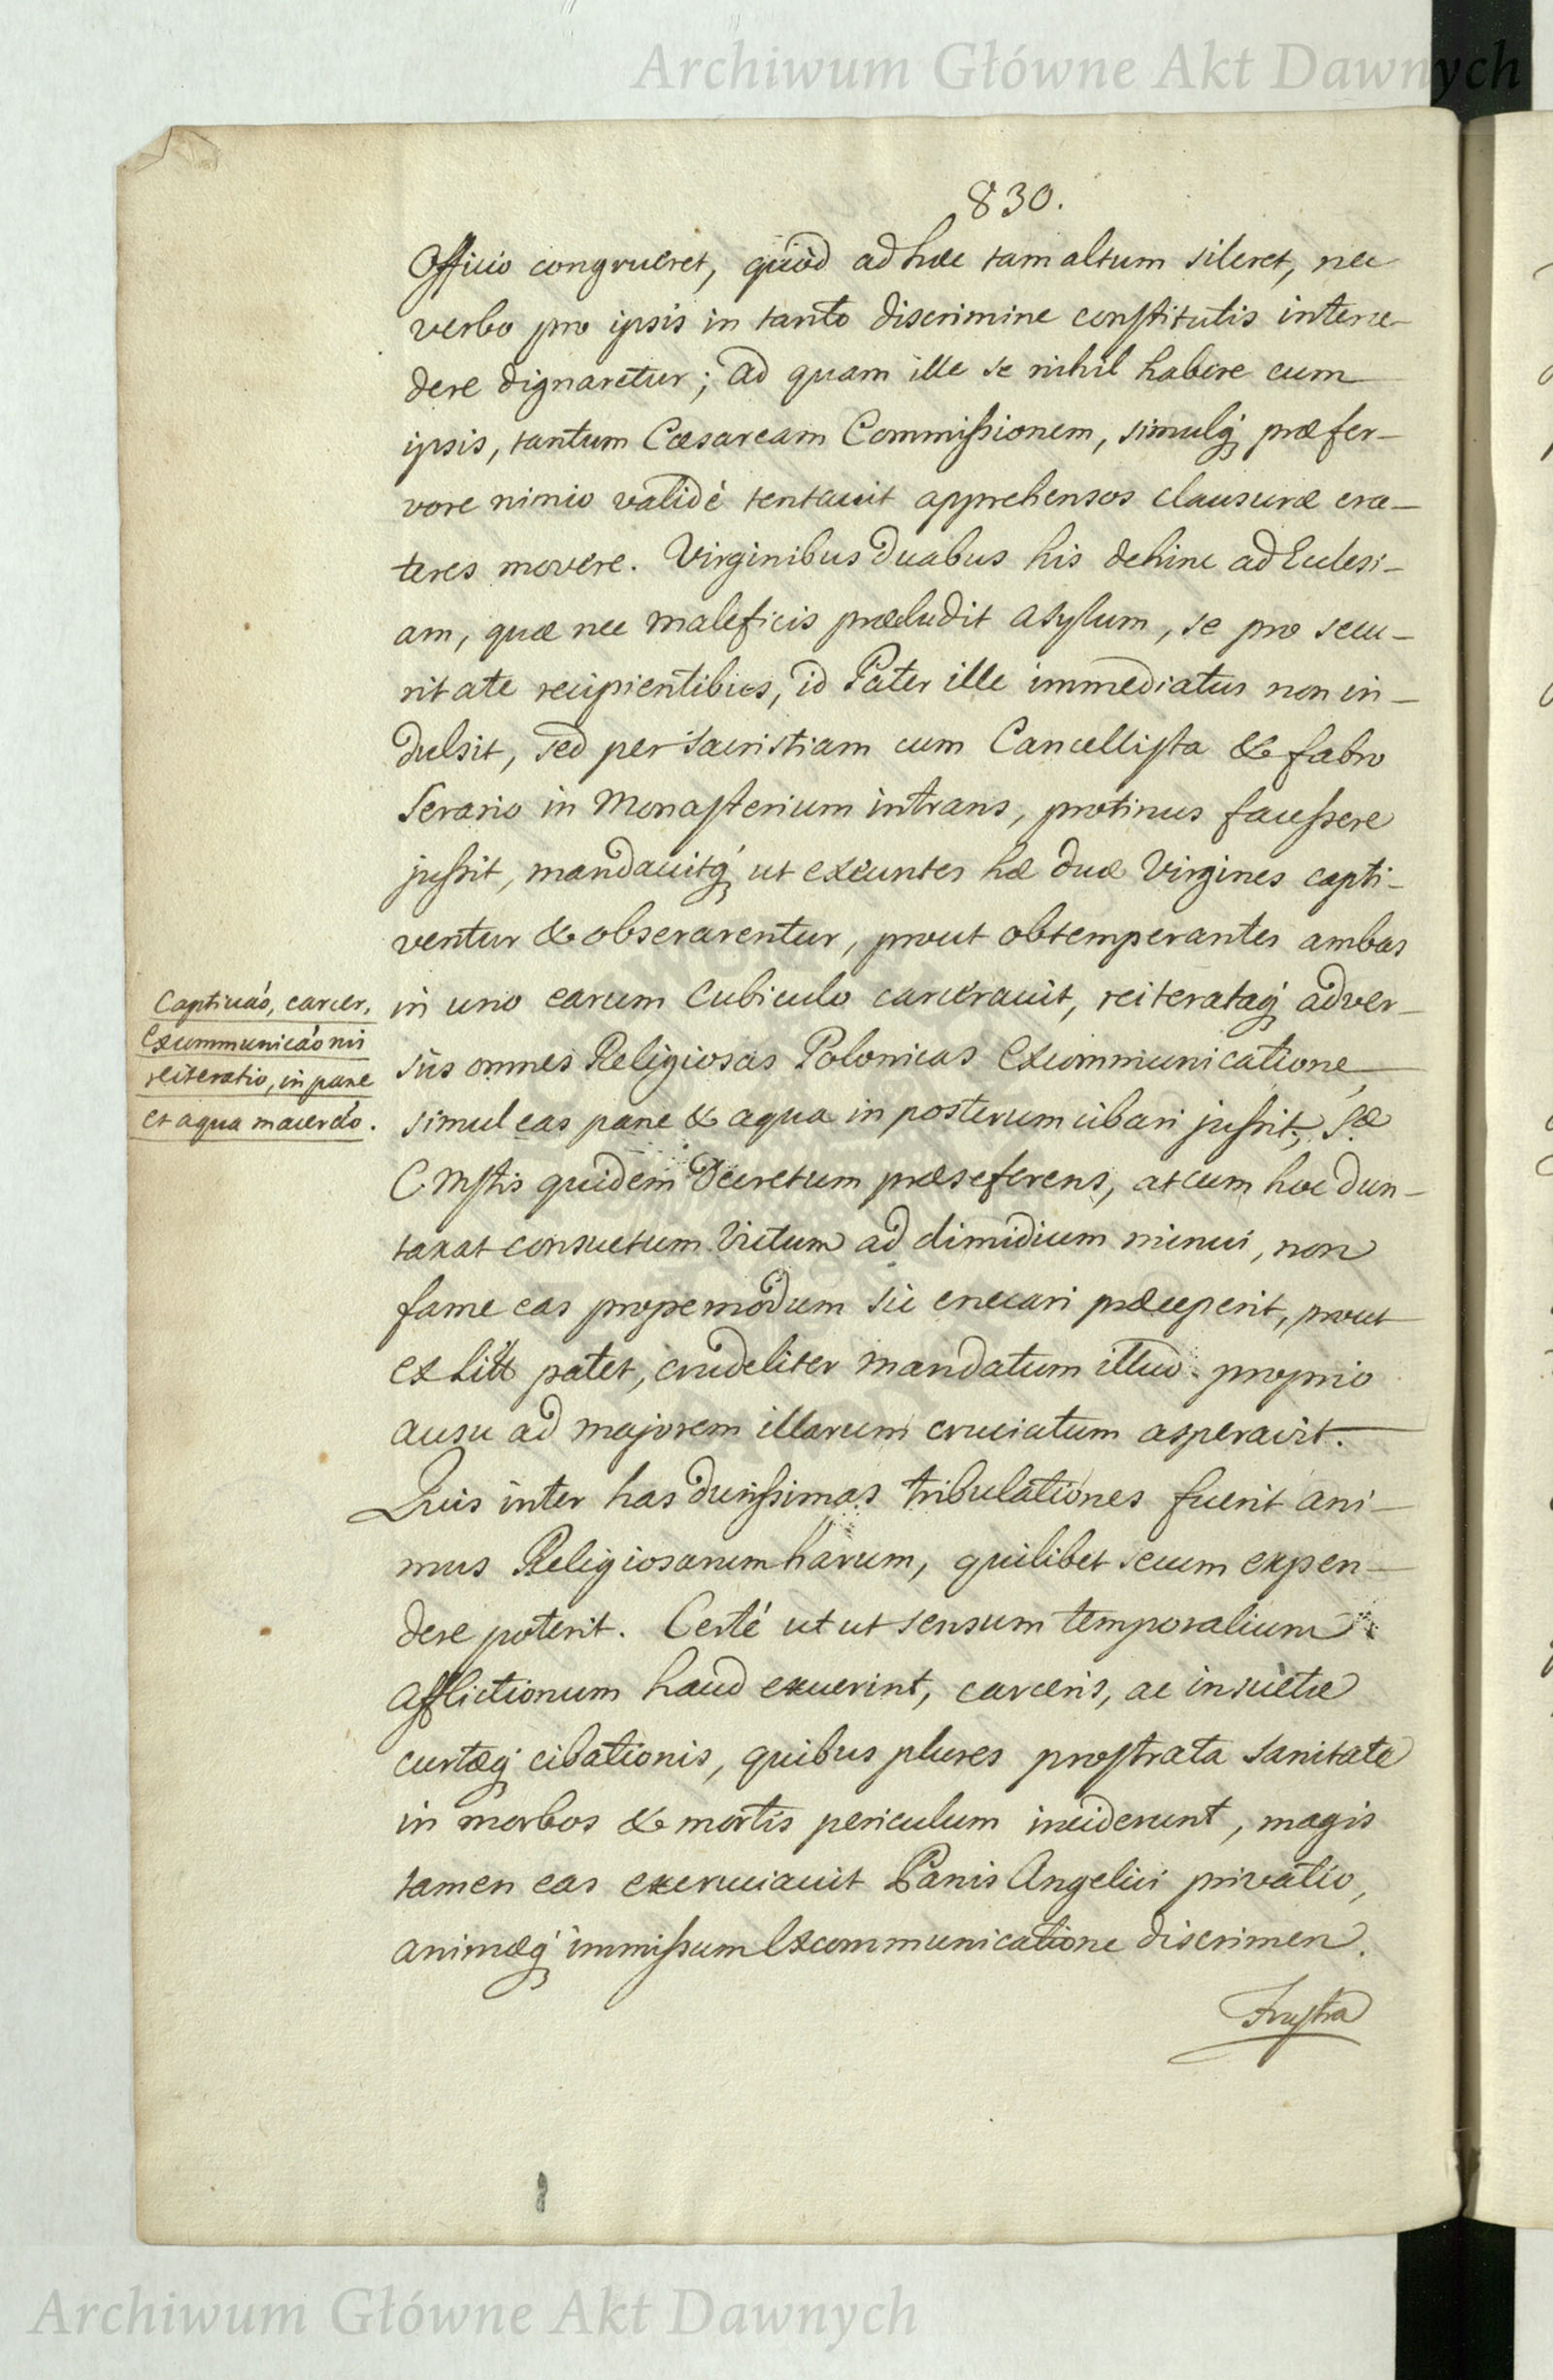 Archiwum Główne Akt Dawnych
830.
Officio congrueret, quòd ad hæc tam altum sileret, nec
verbo pro ipsis in tanto discrimine constitutis interce-
dere dignaretur; ad quam ille se nihil habere cum
ipsis, tantum Cæsaream Commissionem, simulq́ præ fer-
vore nimio validè tentavit apprehensos clausuræ cra-
teres movere. Virginibus duabus his dehinc ad Ecclesi-
am, quæ nec maleficis præcludit asylum, se pro secu-
ritate recipientibus, id Pater ille immediatus non in-
dulsit, sed per Sacristiam cum Cancellista & fabro
Serario in Monasterium intrans, protinus facessere
jussit, mandavitq́ ut exeuntes hæ duæ Virgines capti-
ventur & obserarentur, prout obtemperantes ambas
in uno earum Cubiculo carceravit, reiterataq́ adver-
sùs omnes Religiosas Polonicas Excommunicatione,
simul eas pane & aqua in posterum cibari jussit; Sæ
C Mstis quidem Decretum præseferens, at cum hoc dun-
taxat consuetum Victum ad dimidium minui, non
fame eas propemodum sic enecari præceperit, prout
ex Litt patet, crudeliter mandatum illud proprio
ausu ad majorem illarum cruciatum asperavit.
Quis inter has durissimas tribulationes fuerit ani-
mus Religiosarum harum, quilibet secum expen-
dere poterit. Certè ut ut sensum temporalium
afflictionum haud exuerint, carceris, ac insuetæ
curtæq́ cibationis, quibus plures prostrata sanitate
in morbos & mortis periculum inciderunt, magis
tamen eas excruciavit Panis Angelici privatio,
animæq́ immissum Excommunicatione discrimen.
Frustra
Captivaó, carcer,
Excommunicaónis
reiteratio, in pane
et aqua macerãó.
Archiwum Główne Akt Dawnych